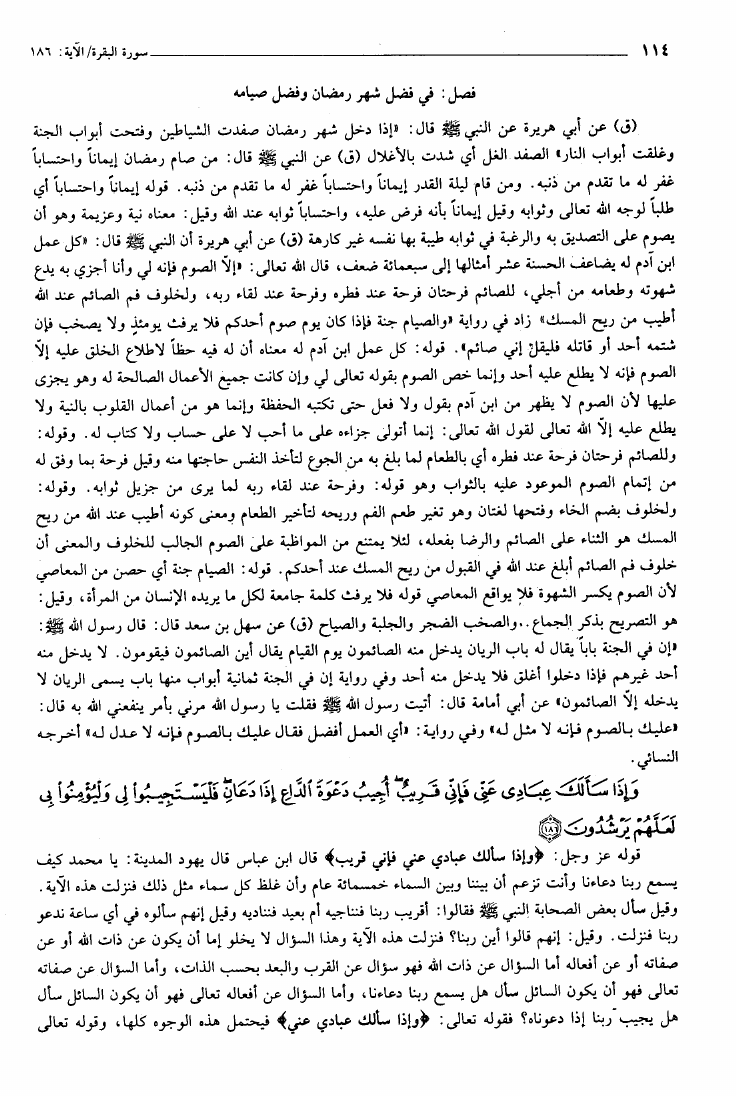 ١١٤ سورة البقرة/ الآية: ١٨٦
فصل: في فضل شهر رمضان وفضل صيامه
(ق) عن أبي هريرة عن النبي ﷺ قال: «إذا دخل شهر رمضان صفدت الشياطين وفتحت أبواب الجنة
وغلقت أبواب النار» الصفد الغل أي شدت بالأغلال (ق) عن النبي ﷺ قال: من صام رمضان إيماناً واحتساباً
غفر له ما تقدم من ذنبه. ومن قام ليلة القدر إيماناً واحتساباً غفر له ما تقدم من ذنبه. قوله إيماناً واحتساباً أي
طلباً لوجه الله تعالى وثوابه وقيل إيماناً بأنه فرض عليه، واحتساباً ثوابه عند الله وقيل: معناه نية وعزيمة وهو أن
يصوم على التصديق به والرغبة في ثوابه طيبة بها نفسه غير كارهة (ق) عن أبي هريرة أن النبي ﷺ قال: «كل عمل
ابن آدم له يضاعف الحسنة عشر أمثالها إلى سبعمائة ضعف، قال الله تعالى: «إلّا الصوم فإنه لي وأنا أجزي به يدع
شهوته وطعامه من أجلي، للصائم فرحتان فرحة عند فطره وفرحة عند لقاء ربه، ولخلوف فم الصائم عند الله
أطيب من ريح المسك» زاد في رواية «والصيام جنة فإذا كان يوم صوم أحدكم فلا يرفث يومئذٍ ولا يصخب فإن
شتمه أحد أو قاتله فليقلْ إني صائم». قوله: كل عمل ابن آدم له معناه أن له فيه حظاً لاطلاع الخلق عليه إلّا
الصوم فإنه لا يطلع عليه أحد وإنما خص الصوم بقوله تعالى لي وإن كانت جميع الأعمال الصالحة له وهو يجزى
عليها لأن الصوم لا يظهر من ابن آدم بقول ولا فعل حتى تكتبه الحفظة وإنما هو من أعمال القلوب بالنية ولا
يطلع عليه إلّا الله تعالى لقول الله تعالى: إنما أتولى جزاءه على ما أحب لا على حساب ولا كتاب له. وقوله:
وللصائم فرحتان فرحة عند فطره أي بالطعام لما بلغ به من الجوع لتأخذ النفس حاجتها منه وقيل فرحة بما وفق له
من إتمام الصوم الموعود عليه بالثواب وهو قوله: وفرحة عند لقاء ربه لما يرى من جزيل ثوابه. وقوله:
ولخلوف بضم الخاء وفتحها لغتان وهو تغير طعم الفم وريحه لتأخير الطعام ومعنى كونه أطيب عند الله من ريح
المسك هو الثناء على الصائم والرضا بفعله، لئلا يمتنع من المواظبة على الصوم الجالب للخلوف والمعنى أن
خلوف فم الصائم أبلغ عند الله في القبول من ريح المسك عند أحدكم. قوله: الصيام جنة أي حصن من المعاصي
لأن الصوم يكسر الشهوة فلا يواقع المعاصي قوله فلا يرفث كلمة جامعة لكل ما يريده الإنسان من المرأة، وقيل:
هو التصريح بذكر الجماع. والصخب الضجر والجلبة والصياح (ق) عن سهل بن سعد قال: قال رسول الله ﷺ:
«إن في الجنة باباً يقال له باب الريان يدخل منه الصائمون يوم القيام يقال أين الصائمون فيقومون. لا يدخل منه
أحد غيرهم فإذا دخلوا أغلق فلا يدخل منه أحد وفي رواية إن في الجنة ثمانية أبواب منها باب يسمى الريان لا
يدخله إلّا الصائمون» عن أبي أمامة قال: أتيت رسول الله ﷺ فقلت يا رسول الله مرني بأمر ينفعني الله به قال:
«عليك بالصوم فإنه لا مثل له» وفي رواية: «أي العمل أفضل فقال عليك بالصوم فإنه لا عدل له» أخرجه
النسائي.
وَإِذَا سَأَلَكَ عِبَادِى عَنِّى فَإِنِّى قَرِيبٌ أُجِيبُ دَعْوَةَ ٱلدَّاعِ إِذَا دَعَانِ فَلْيَسْتَجِيبُوا۟ لِى وَلْيُؤْمِنُوا۟ بِى
لَعَلَّهُمْ يَرْشُدُونَ ١٨٦
قوله عز وجل: ﴿وإذا سألك عبادي عني فإني قريب﴾ قال ابن عباس قال يهود المدينة: يا محمد كيف
يسمع ربنا دعاءنا وأنت تزعم أن بيننا وبين السماء خمسمائة عام وأن غلظ كل سماء مثل ذلك فنزلت هذه الآية.
وقيل سأل بعض الصحابة النبي ﷺ فقالوا: أقريب ربنا فنناجيه أم بعيد فنناديه وقيل إنهم سألوه في أي ساعة ندعو
ربنا فنزلت. وقيل: إنهم قالوا أين ربنا؟ فنزلت هذه الآية وهذا السؤال لا يخلو إما أن يكون عن ذات الله أو عن
صفاته أو عن أفعاله أما السؤال عن ذات الله فهو سؤال عن القرب والبعد بحسب الذات، وأما السؤال عن صفاته
تعالى فهو أن يكون السائل سأل هل يسمع ربنا دعاءنا، وأما السؤال عن أفعاله تعالى فهو أن يكون السائل سأل
هل يجيب ربنا إذا دعوناه؟ فقوله تعالى: ﴿وإذا سألك عبادي عني﴾ فيحتمل هذه الوجوه كلها، وقوله تعالى